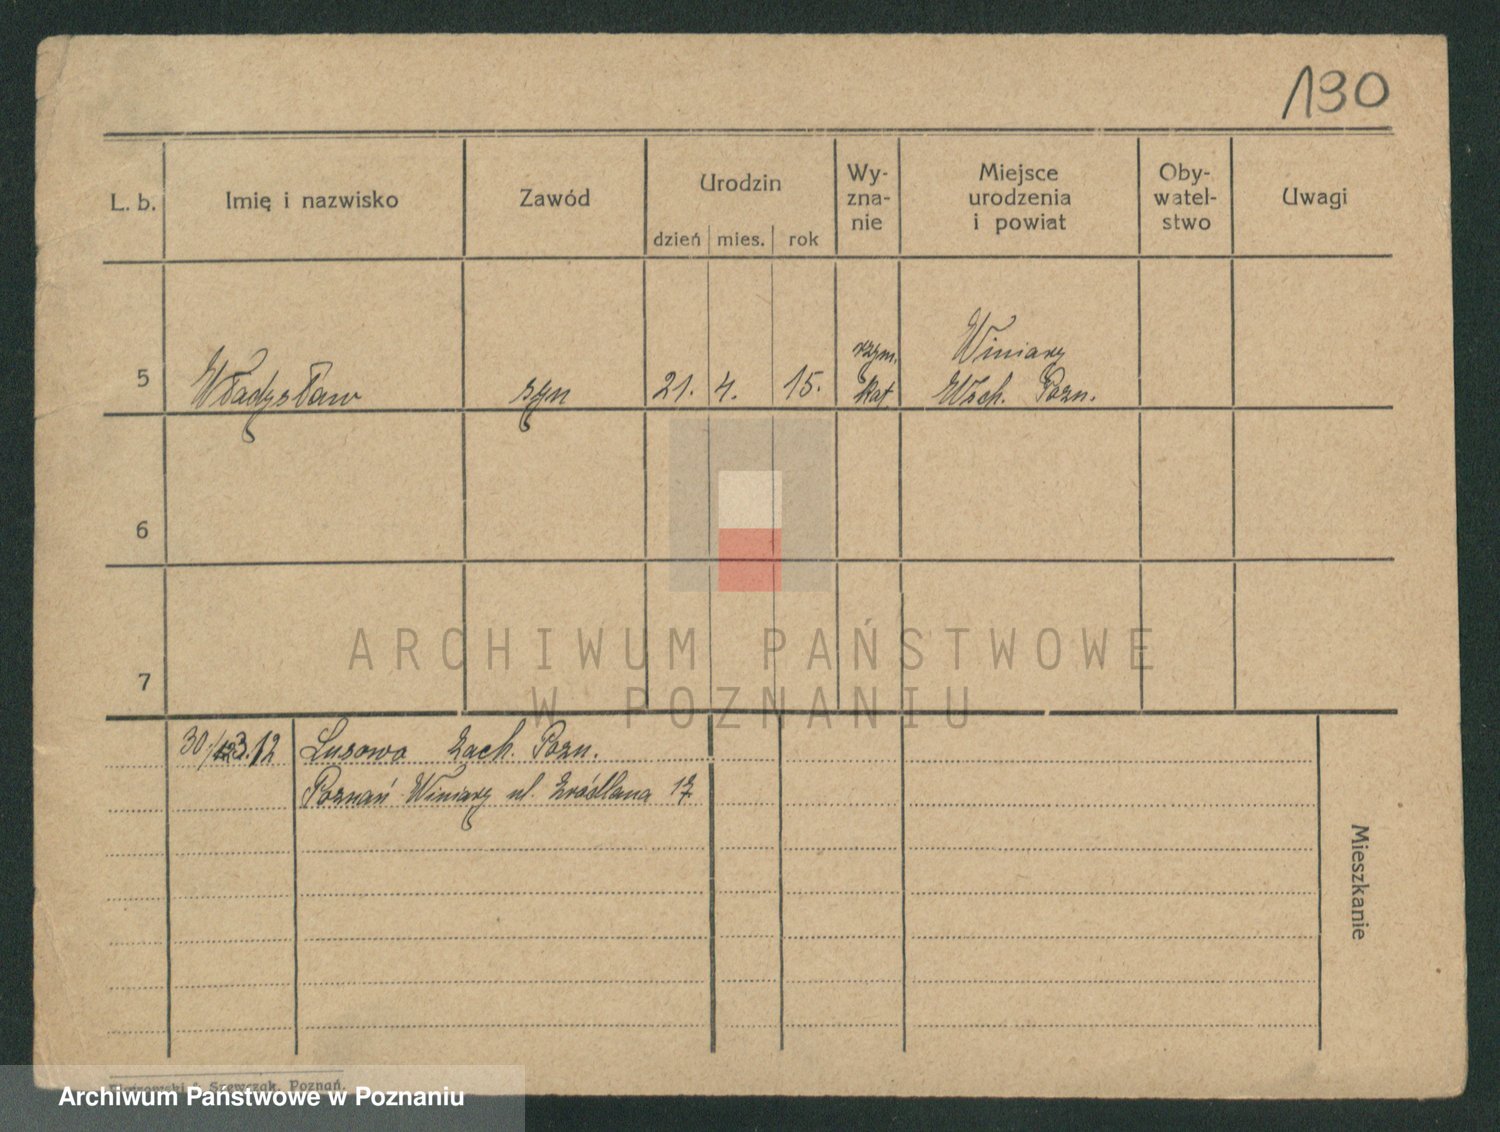 130
L. b. Imię i nazwisko Zawód Urodzin Wy-zna-nie Miejsce urodzenia i powiat Oby-watel-stwo Uwagi
dzień mies. rok
rzym. Winiary
5 Władysław syn 21. 4. 15. kat. Wsch. Pozn.
6
7
ARCHIWUM PAŃSTWOWE
W POZNANIU
30/3.12 Lusowo Zach. Pozn.
Poznań Winiary ul. Źródlana 17
Mieszkanie
Szewczak, Poznań.
Archiwum Państwowe w Poznaniu